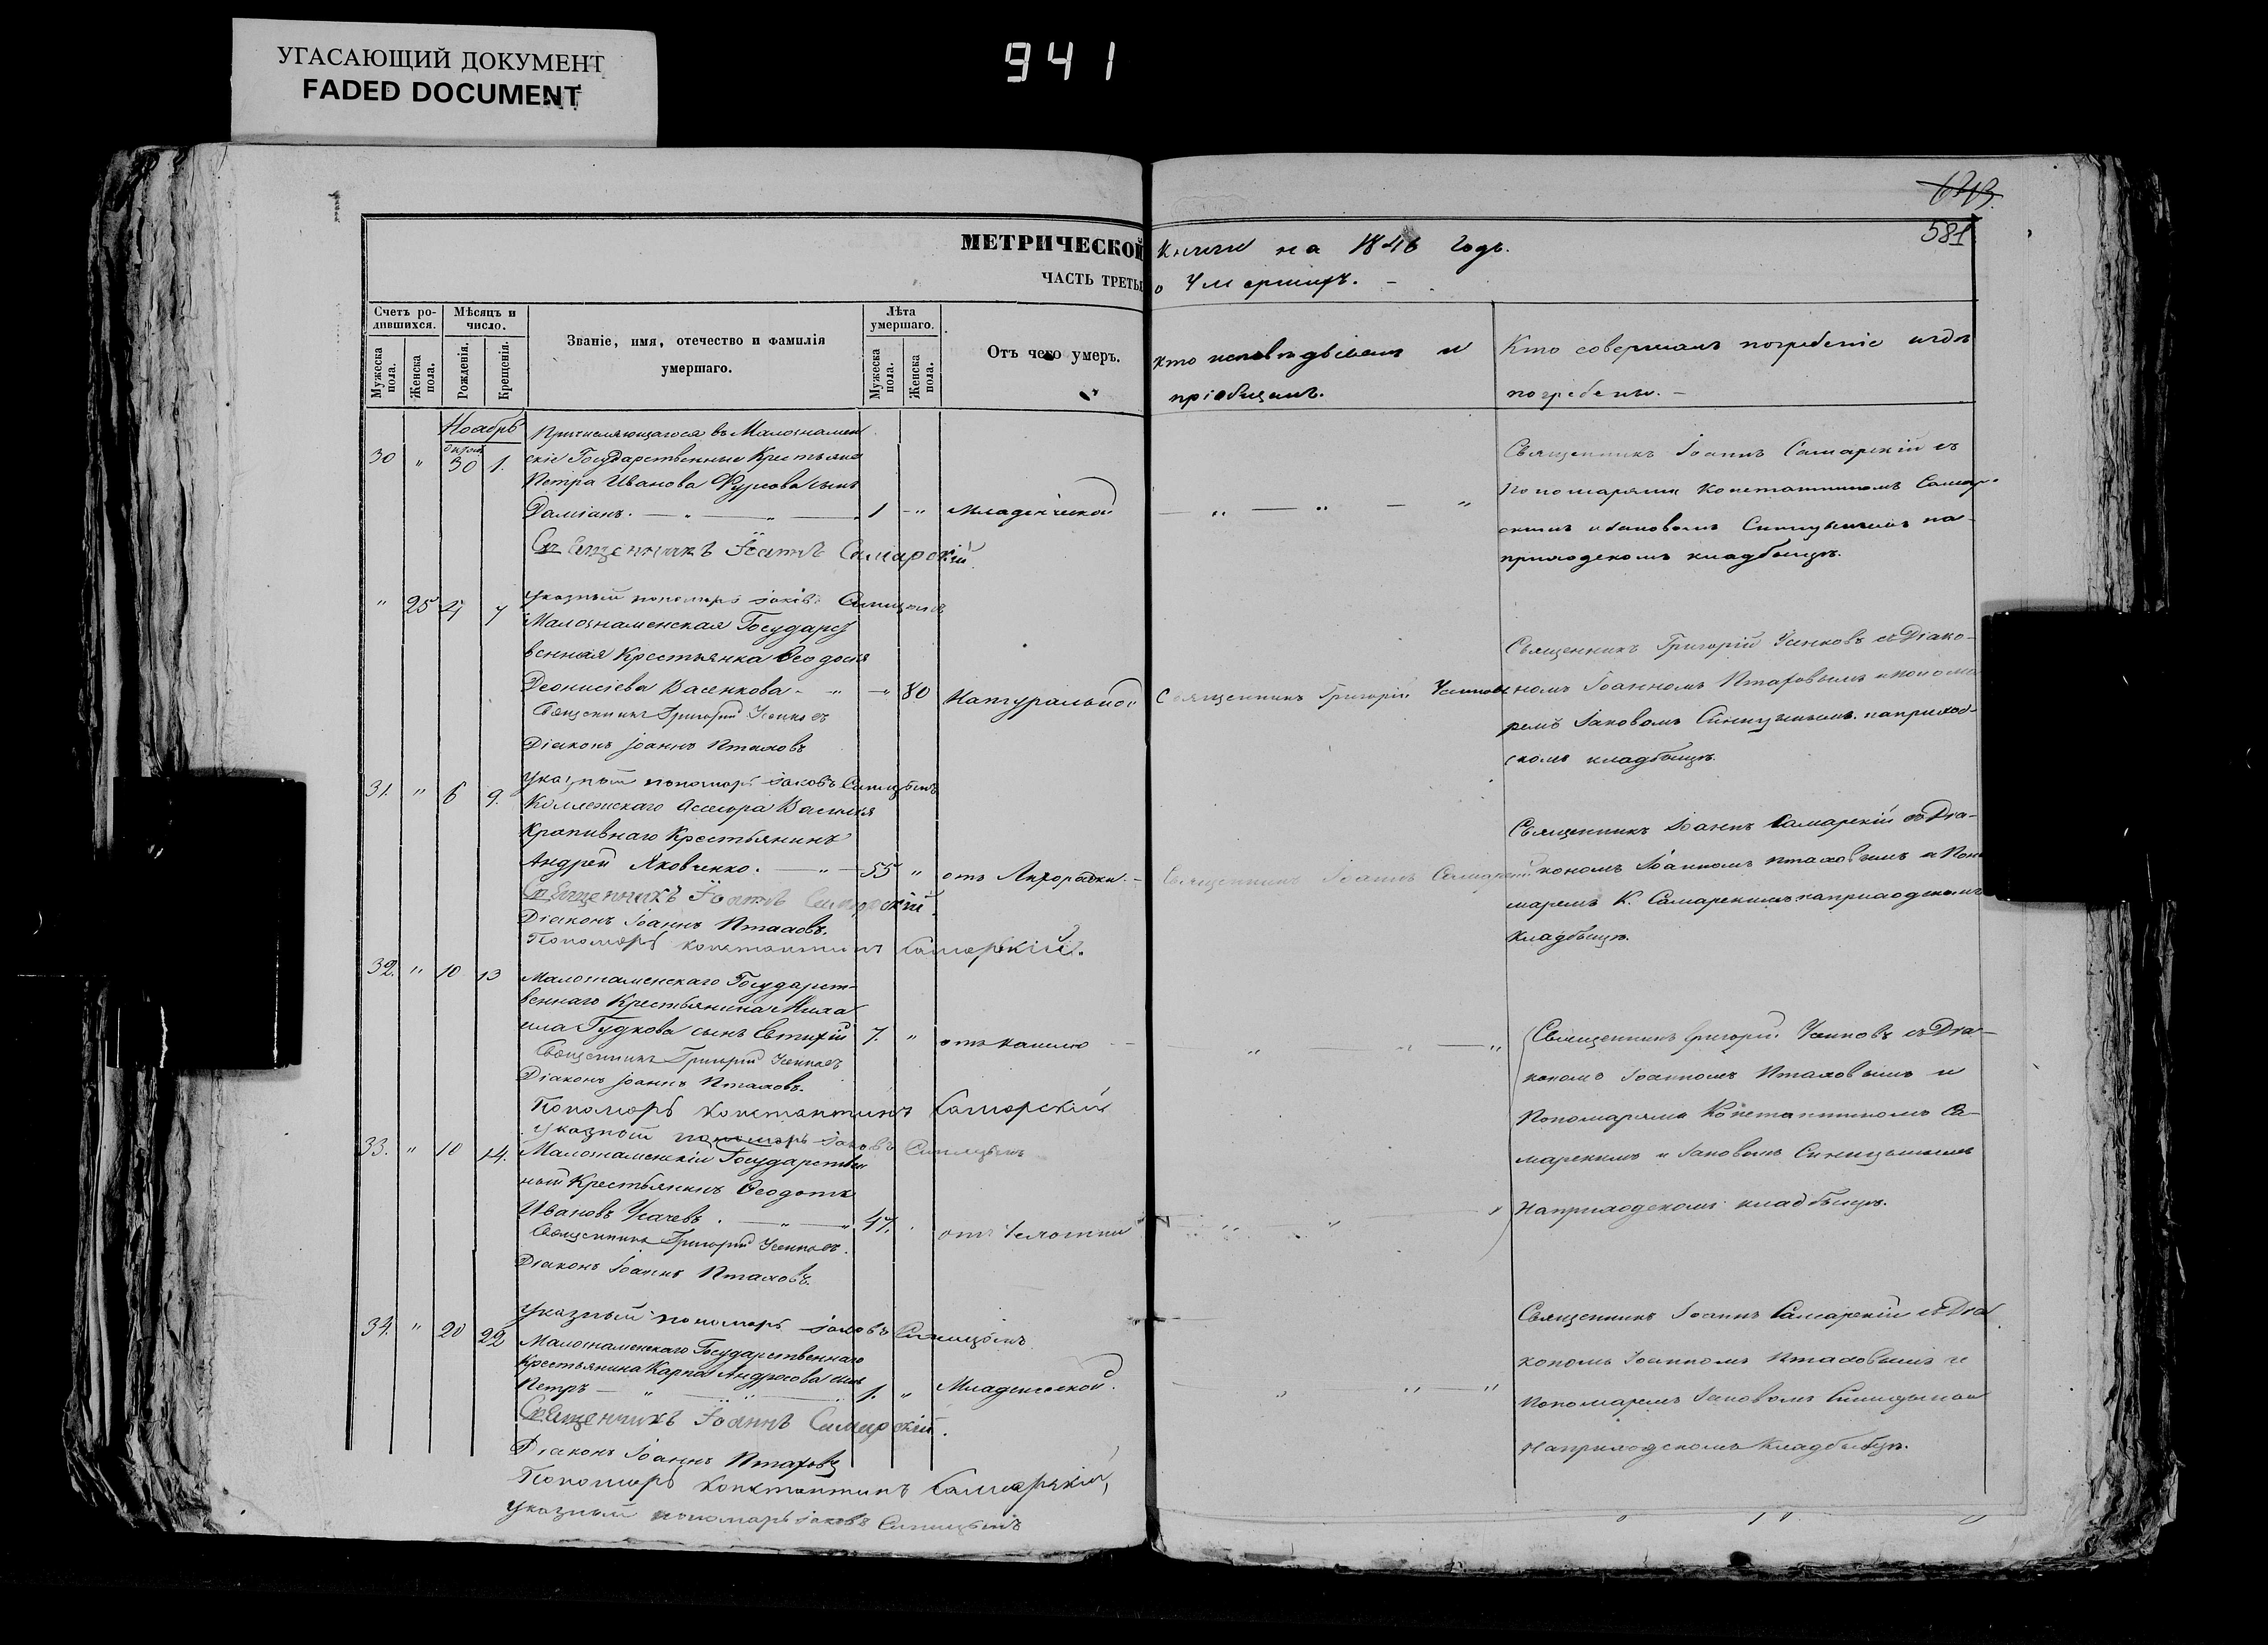 УГАСАЮЩИЙ ДОКУМЕНТ
FADED DOCUMENT
941
581
МЕТРИЧЕСКОЙ книги на 1846 годъ.
ЧАСТЬ ТРЕТЬЯ о Умершихъ.
Счетъ родившихся.
Мужеска пола.
Женска пола.
Мѣсяцъ и число.
Рожденія.
Крещенія.
Званіе, имя, отечество и фамилія умершаго.
Лѣта умершаго.
Мужеска пола.
Женска пола.
Отъ чего умеръ.
Кто исповѣдывалъ и
пріобщалъ.
Кто совершалъ погребеніе и гдѣ
погребены.
Ноябрь
30 " 30 1.
Причисляющагося въ Малознамен
скіе Государственные Крестьяне
Петра Иванова сынъ
Даміанъ. 1 " Младенческой
Священникъ Іоаннъ Самарскій
Священникъ Іоаннъ Самарскій съ
Пономарями Константиномъ Самар-
скимъ и Іаковомъ Синицынымъ на
приходскомъ кладбищѣ.
Указный пономарь Іаковъ Синицынъ
" 25 4 7
Малознаменская Государст
венная Крестьянка Ѳеодосія
Деонисіева Васенкова 80 Натуральной
Священникъ Григорій Усенковъ
Діаконъ Іоаннъ Птаховъ
Священникъ Григорій Усенковъ
Священникъ Григорій Усенковъ съ Діако-
номъ Іоанномъ Птаховымъ и понома
ремъ Іаковомъ Синицынымъ на приход-
скомъ кладбищѣ.
Указный пономарь Іаковъ Синицынъ
31. " 6 9.
Коллежскаго Асесора Василія
Кропивнаго Крестьянинъ
Андрей Яковченко. 55 " отъ Лихорадки.
Священникъ Іоаннъ Самарскій
Діаконъ Іоаннъ Птаховъ.
Пономарь Константинъ Самарскій.
Священникъ Іоаннъ Самарскій
Священникъ Іоаннъ Самарскій съ Діа-
кономъ Іоанномъ Птаховымъ и Поно
маремъ К. Самарскимъ на приходскомъ
кладбищѣ.
32. " 10 13
Малознаменскаго Государст-
веннаго Крестьянина Миха
ила Гудкова сынъ Евтихій 7. " отъ кашлю
Священникъ Григорій Усенковъ
Діаконъ Іоаннъ Птаховъ.
Пономарь Константинъ Самарскій
Указный пономарь Іаковъ Синицынъ
Священникъ Григорій Усенковъ съ Діа-
кономъ Іоанномъ Птаховымъ и
Пономарями Константиномъ Са-
марскимъ и Іаковомъ Синицынымъ
на приходскомъ кладбищѣ.
33. " 10 14.
Малознаменскій Государствен
ный Крестьянинъ Ѳеодотъ
Ивановъ Усачевъ. 47.
Священникъ Григорій Усенковъ.
Діаконъ Іоаннъ Птаховъ.
Указный пономарь Іаковъ Синицынъ
34. " 20 22
Малознаменскаго Государственнаго
Крестьянина Карпа Андросова сынъ
Петръ 1. " Младенческой.
Священникъ Іоаннъ Самарскій.
Діаконъ Іоаннъ Птаховъ
Пономарь Константинъ Самарскій,
Указный пономарь Іаковъ Синицынъ
Священникъ Іоаннъ Самарскій съ Діа
кономъ Іоанномъ Птаховымъ и
Пономаремъ Іаковомъ Синицынымъ
на приходскомъ кладбищѣ.